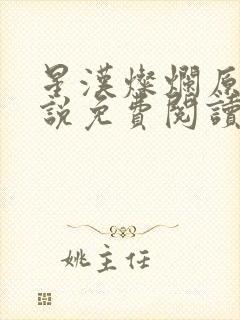 星漢燦爛原
說免費閱讀
姚主任